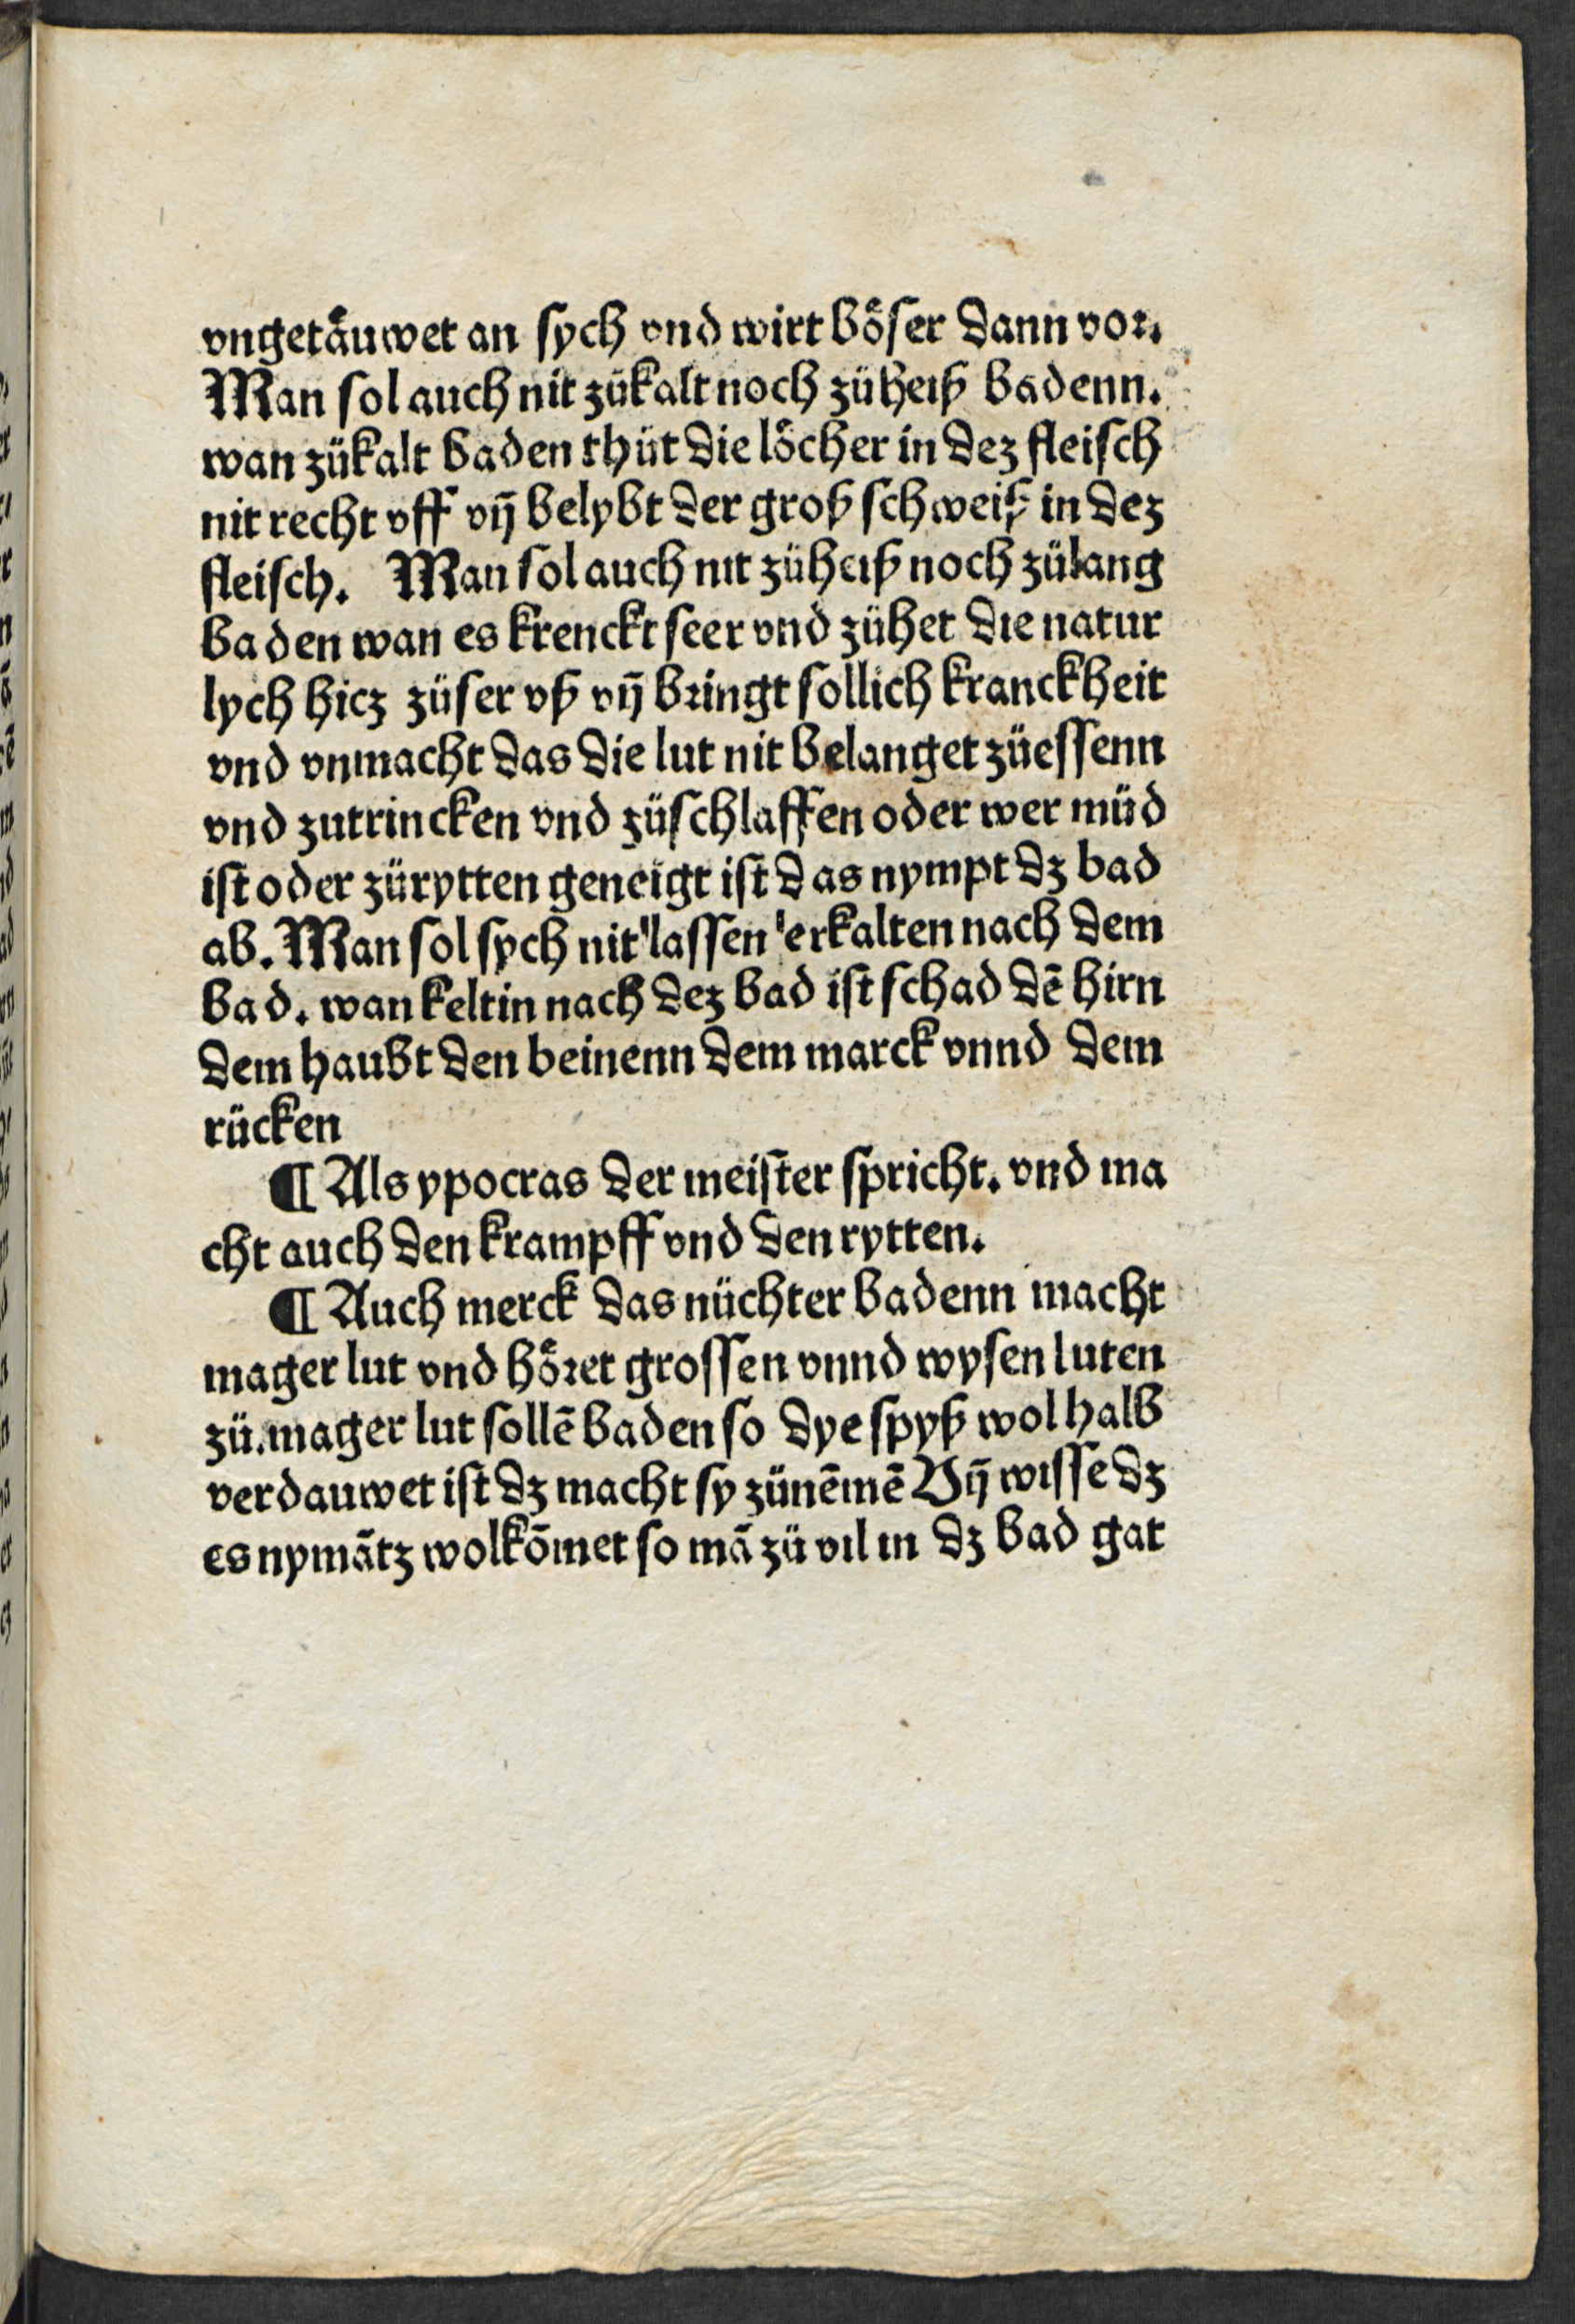 vngetåuwet an sych vnd wirt bőser dann vor.
Man sol auch nit zükalt noch zü heiß badenn.
wan zükalt baden thüt die löcher in dez fleisch
nit recht vff vn̄ belybt der groß schweiß in dez
fleisch. Man sol auch nit züheiß noch zülang
baden wan es krenckt seer vnd zühet die natur
lych hicz züser vß vn̄ bringt sollich kranckheit
vnd vnmacht das die lut nit belanget züessenn
vnd zutrincken vnd züschlaffen oder wer müd
ist oder zürytten geneigt ist das nympt dz bad
ab. Man sol sych nit lassen erkalten nach dem
bad. wan keltin nach dez bad ist schad dē hirn
dem haubt den beinenn dem marck vnnd dem
rücken
¶ Als ypocras der meister spricht. vnd ma
cht auch den krampff vnd den rytten.
¶ Auch merck das nüchter badenn macht
mager lut vnd höret grossen vnnd wysen luten
zü. mager lut sollē baden so dye spyß wol halb
verdauwet ist dz macht sy zünēmē Vn̄ wisse dz
es nymātz wolkōmet so mā zü vil in dz bad gat